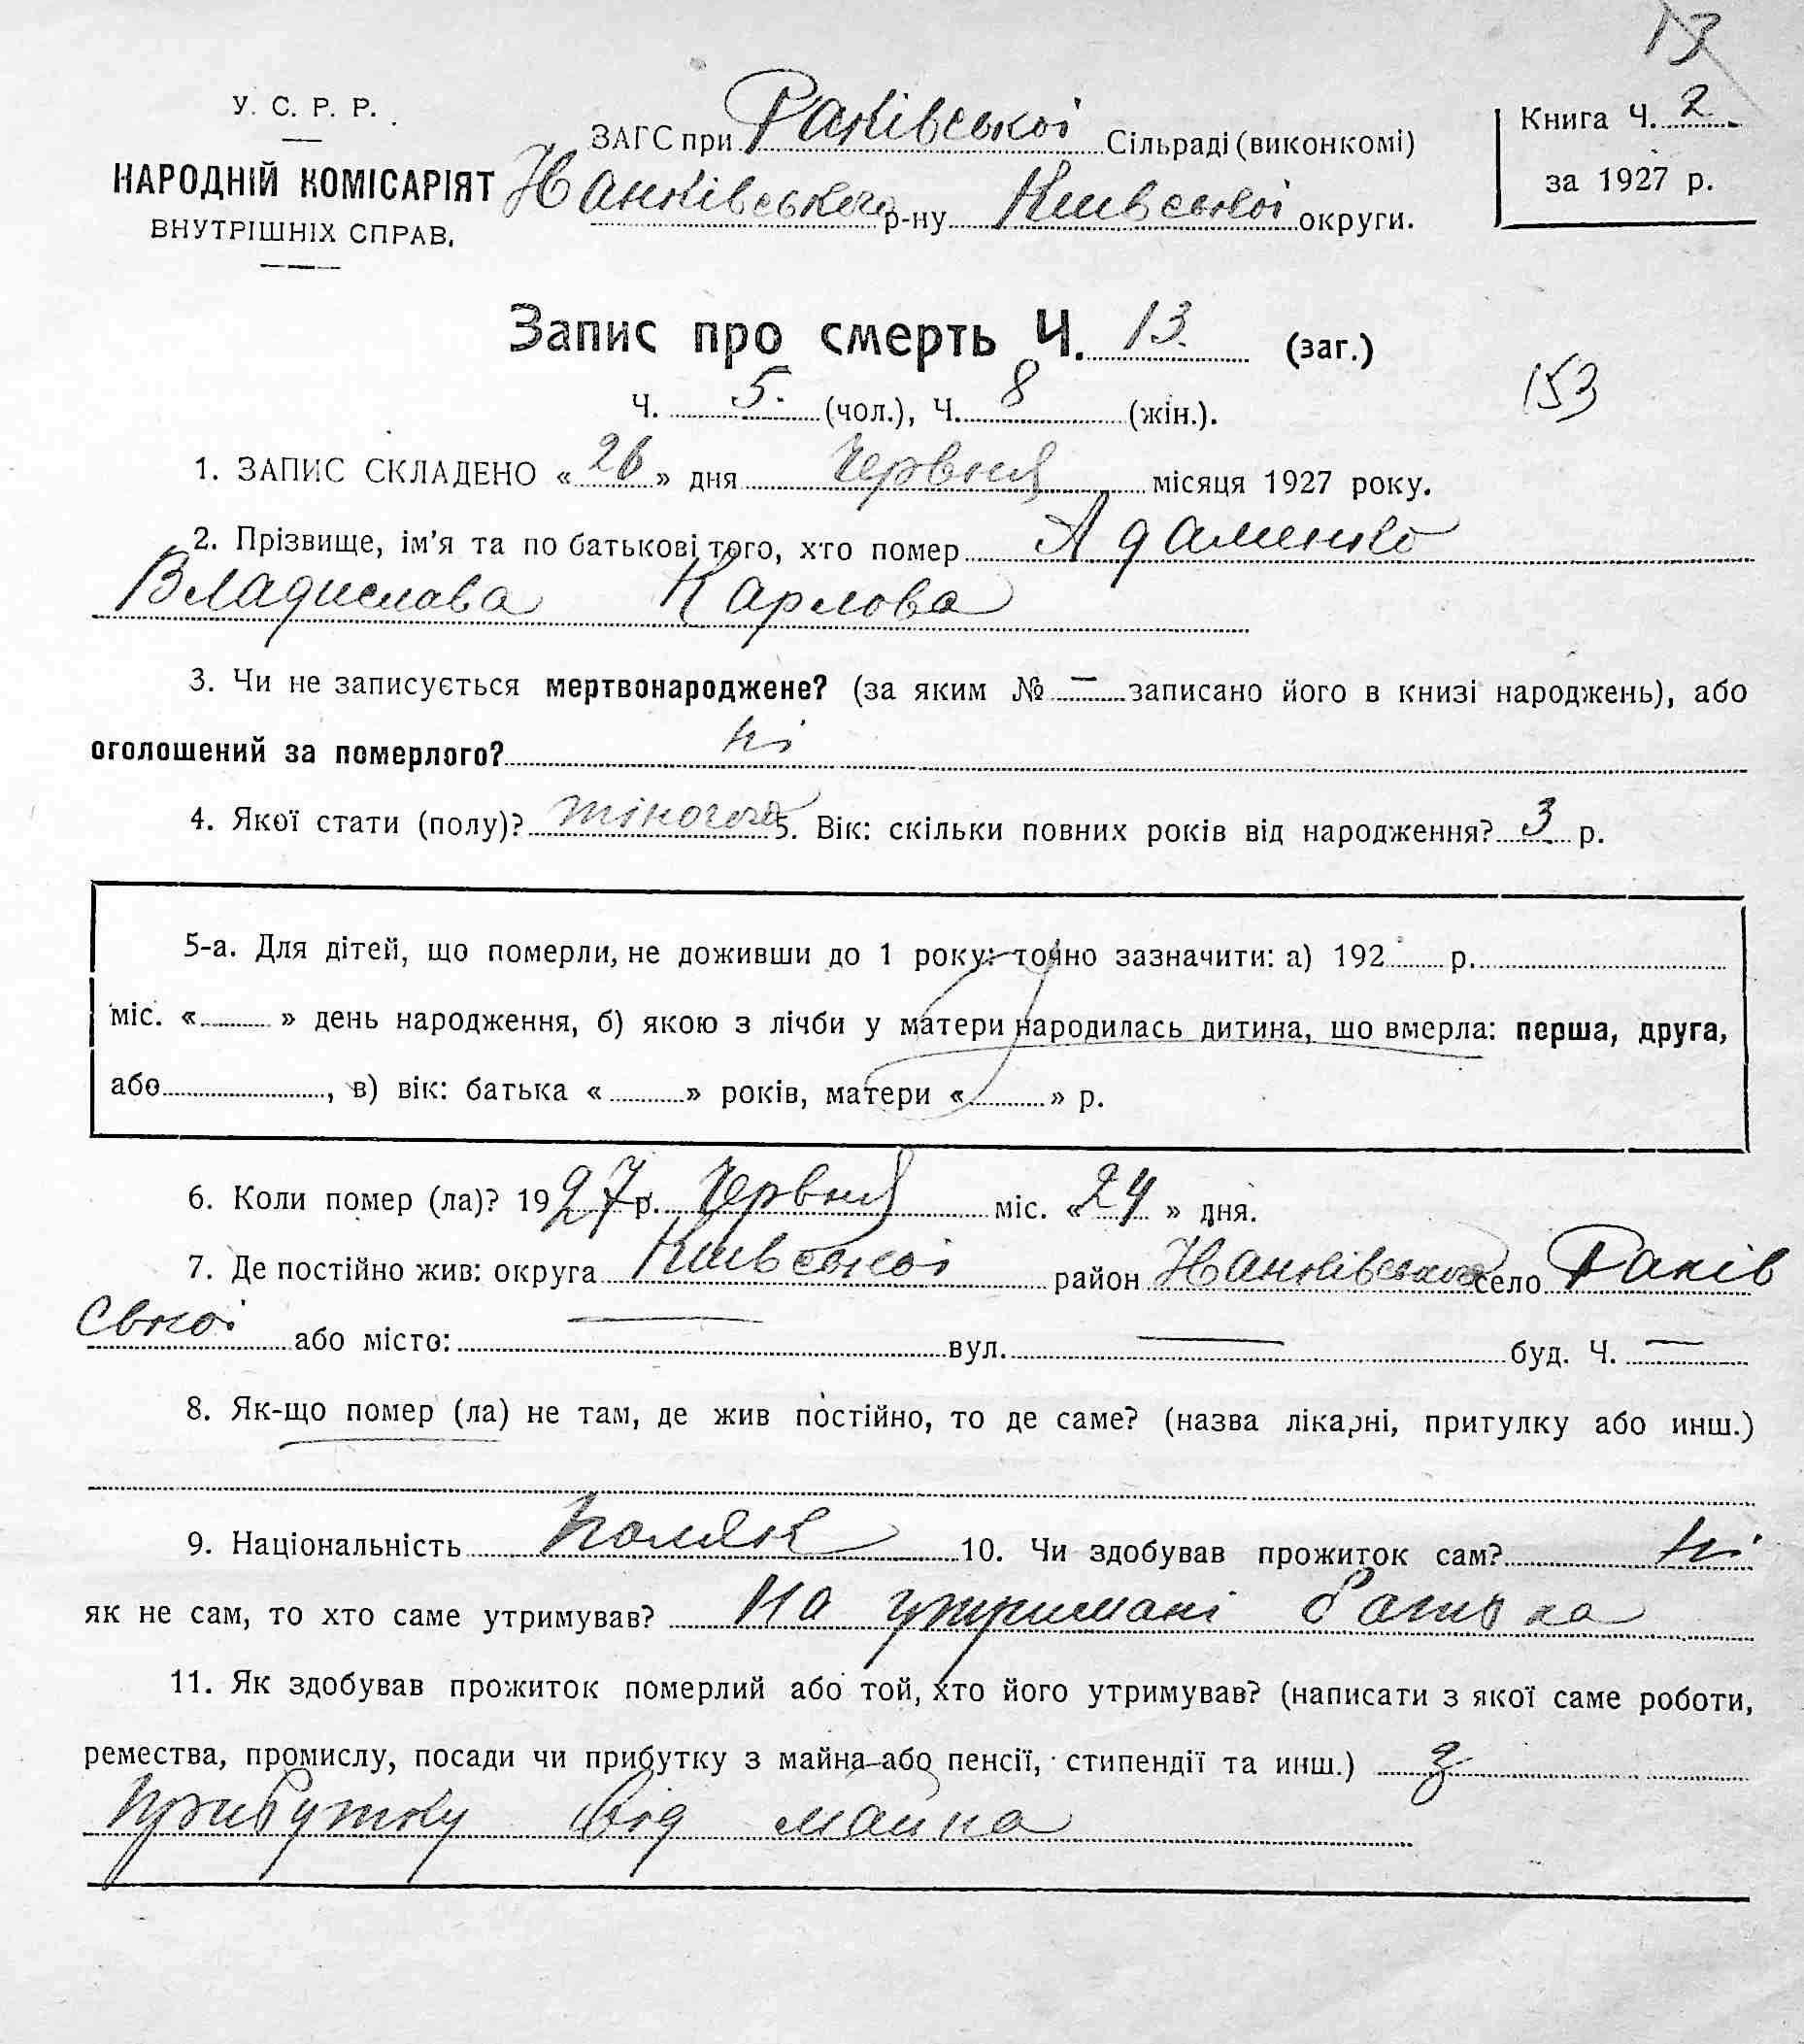 13
У. С. Р. Р.
НАРОДНІЙ КОМІСАРІЯТ
ВНУТРІШНІХ СПРАВ.
ЗАГС при Раківської Сільраді (виконкомі)
Ханківського р-ну Київської округи.
Книга Ч. 2
за 1927 р.
Запис про смерть Ч. 13. (заг.)
Ч. 5. (чол.), Ч. 8 (жін.).
153
1. ЗАПИС СКЛАДЕНО « 26 » дня Червня місяця 1927 року.
2. Прізвище, ім'я та по батькові того, хто помер Адаменко
Владислава Карлова
3. Чи не записується мертвонароджене? (за яким № — записано його в книзі народжень), або
оголошений за померлого? ні
4. Якої стати (полу)? жіночого 5. Вік: скільки повних років від народження? 3 р.
5-а. Для дітей, що померли, не доживши до 1 року: точно зазначити: а) 192 р.
міс. « » день народження, б) якою з лічби у матери народилась дитина, що вмерла: перша, друга,
або , в) вік: батька « » років, матери « » р.
6. Коли помер (ла)? 1927 р. Червня міс. « 24 » дня.
7. Де постійно жив: округа Київської район Ханківського село Раків
ської або місто: — вул. — буд. Ч. —
8. Як-що помер (ла) не там, де жив постійно, то де саме? (назва лікарні, притулку або инш.)
9. Національність поляк 10. Чи здобував прожиток сам? ні
як не сам, то хто саме утримував? На утримані батька
11. Як здобував прожиток померлий або той, хто його утримував? (написати з якої саме роботи,
ремества, промислу, посади чи прибутку з майна або пенсії, стипендії та инш.) з
прибутку від майна